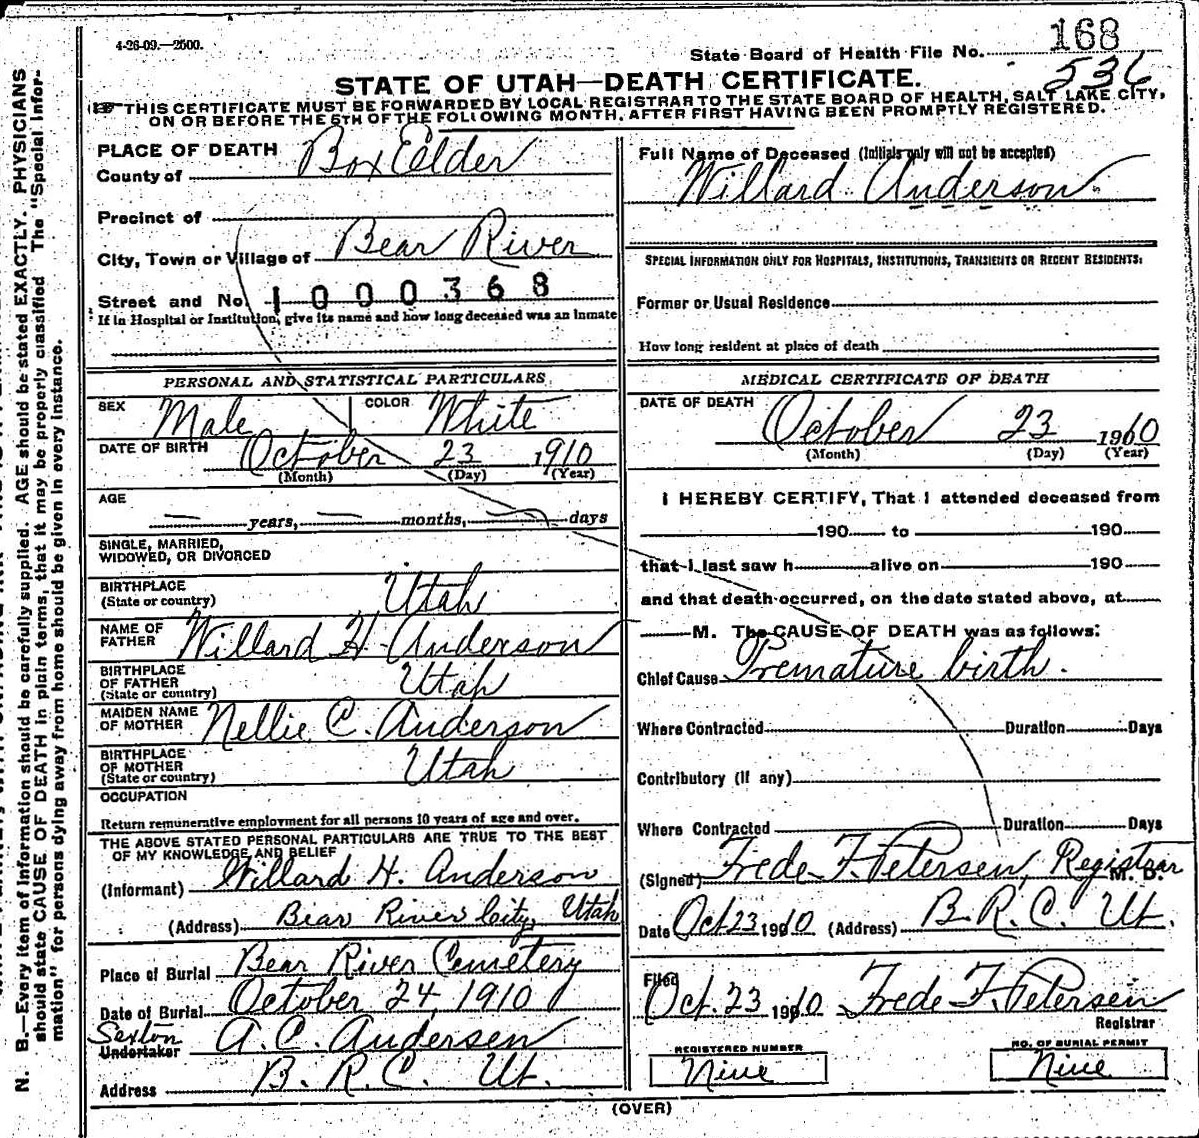 4-26-09.—2500.
State Board of Health File No. 168
536
STATE OF UTAH—DEATH CERTIFICATE.
THIS CERTIFICATE MUST BE FORWARDED BY LOCAL REGISTRAR TO THE STATE BOARD OF HEALTH, SALT LAKE CITY,
ON OR BEFORE THE 5TH OF THE FOLLOWING MONTH, AFTER FIRST HAVING BEEN PROMPTLY REGISTERED.
PLACE OF DEATH
County of Box Elder
Precinct of
City, Town or Village of Bear River
Street and No. 1000368
If in Hospital or Institution, give its name and how long deceased was an inmate
Full Name of Deceased (Initials only will not be accepted)
Willard Anderson
SPECIAL INFORMATION ONLY FOR HOSPITALS, INSTITUTIONS, TRANSIENTS OR RECENT RESIDENTS:
Former or Usual Residence
How long resident at place of death
PERSONAL AND STATISTICAL PARTICULARS
SEX Male COLOR White
DATE OF BIRTH October 23 1910
(Month) (Day) (Year)
AGE
— years, — months, — days
SINGLE, MARRIED,
WIDOWED, OR DIVORCED
BIRTHPLACE
(State or country) Utah
NAME OF
FATHER Willard H. Anderson
BIRTHPLACE
OF FATHER
(State or country) Utah
MAIDEN NAME
OF MOTHER Nellie C. Anderson
BIRTHPLACE
OF MOTHER
(State or country) Utah
OCCUPATION
Return remunerative employment for all persons 10 years of age and over.
THE ABOVE STATED PERSONAL PARTICULARS ARE TRUE TO THE BEST
OF MY KNOWLEDGE AND BELIEF
(Informant) Willard H. Anderson
(Address) Bear River City, Utah
Place of Burial Bear River Cemetery
Date of Burial October 24, 1910
Sexton
Undertaker A. C. Andersen
Address B. R. C. Ut.
MEDICAL CERTIFICATE OF DEATH
DATE OF DEATH
October 23 1910
(Month) (Day) (Year)
I HEREBY CERTIFY, That I attended deceased from
190 to 190
that I last saw h alive on 190
and that death occurred, on the date stated above, at
M. The CAUSE OF DEATH was as follows:
Chief Cause Premature birth.
Where Contracted Duration Days
Contributory (if any)
Where Contracted Duration Days
(Signed) Frede F. Petersen, Registrar M. D.
Date Oct 23 1910 (Address) B. R. C. Ut.
Filed
Oct. 23 1910 Frede F. Petersen
Registrar
REGISTERED NUMBER
Nine
NO. OF BURIAL PERMIT
Nine
(OVER)
N. B.—Every item of information should be carefully supplied. AGE should be stated EXACTLY. PHYSICIANS
should state CAUSE OF DEATH in plain terms, that it may be properly classified. The "Special Infor-
mation" for persons dying away from home should be given in every instance.